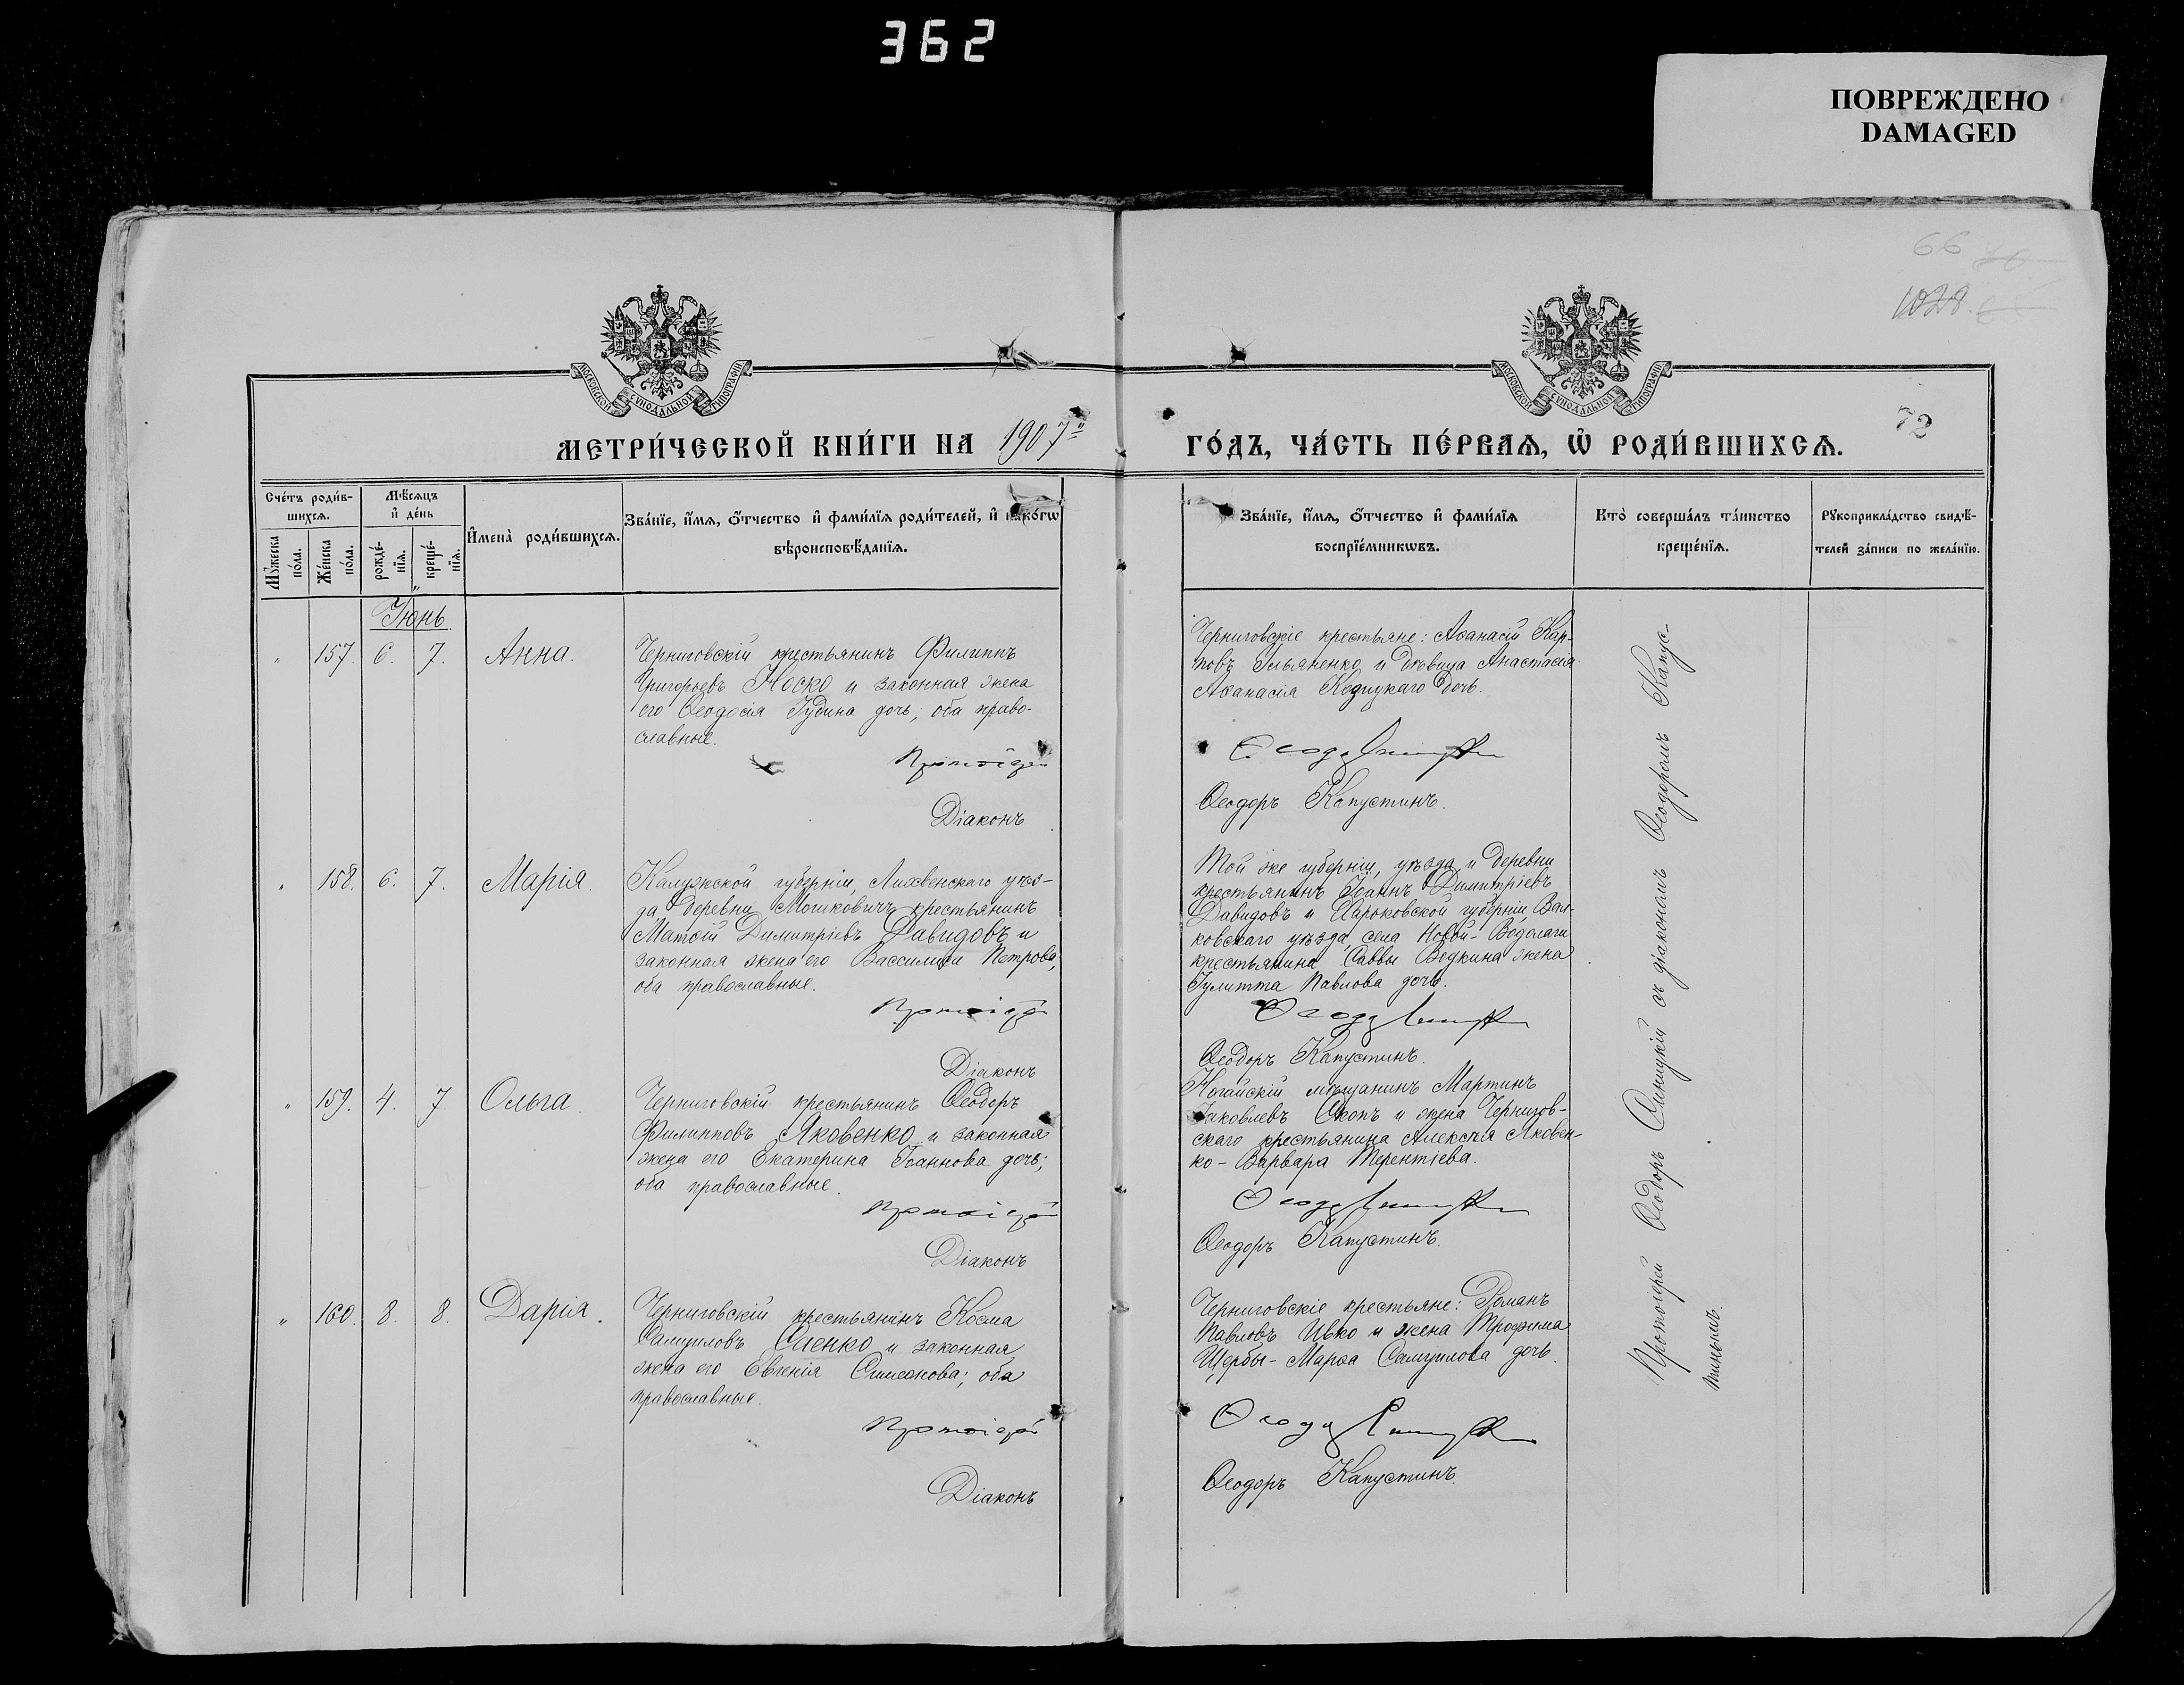 362
ПОВРЕЖДЕНО
DAMAGED
66
1028.
72
МОСКОВСКОЙ СѴНОДАЛЬНОЙ ТИПОГРАФІИ
МОСКОВСКОЙ СѴНОДАЛЬНОЙ ТИПОГРАФІИ
МЕТРИ́ЧЕСКОЙ КНИ́ГИ НА 1907 ГО́ДЪ, ЧА́СТЬ ПЕ́РВАѦ, Ѡ҆ РОДИ́ВШИХСѦ.
Сче́тъ роди́в-
шихсѧ.
Мѹ́жеска
по́ла.
Же́нска
по́ла.
Мѣ́сѧцъ
и҆ де́нь
рожде́-
нїѧ.
креще́-
нїѧ.
И҆мена̀ роди́вшихсѧ.
Зва́нїе, и҆́мѧ, ѻ҆́тчество и҆ фами́лїѧ роди́телей, и҆ како́гѡ
вѣроисповѣ́данїѧ.
Зва́нїе, и҆́мѧ, ѻ҆́тчество и҆ фами́лїѧ
воспрїе́мникѡвъ.
Кто̀ соверша́лъ та́инство
креще́нїѧ.
Рѹкоприкла́дство свидѣ́-
телей за́писи по жела́нїю.
Іюнь
" 157. 6. 7. Анна.
Черниговскій крестьянинъ Филиппъ
Григорьевъ Носко и законная жена
его Ѳеодосія Іудина дочь; оба право-
славные.
Протоіерей
Діаконъ
Черниговскіе крестьяне: Аѳанасій Кар-
повъ Ульяненко и дѣвица Анастасія
Аѳанасія Кодицкаго дочь.
Ѳеодоръ Капустинъ.
" 158. 6. 7. Марія.
Калужской губерніи, Лихвенскаго уѣз-
да, деревни Мошковичъ крестьянинъ
Матѳій Димитріевъ Давидовъ и
законная жена его Вассилиса Петрова,
оба православные.
Протоіерей
Діаконъ
Той же губерніи, уѣзда и деревни
крестьянинъ Іоаннъ Димитріевъ
Давидовъ и Харьковской губерніи, Вал-
ковскаго уѣзда, села Новой-Водолаги
крестьянина Саввы Водкина жена
Іулитта Павлова дочь.
Ѳеодоръ Капустинъ.
" 159. 4. 7. Ольга.
Черниговскій крестьянинъ Ѳеодоръ
Филипповъ Яковенко и законная
жена его Екатерина Іоаннова дочь;
оба православные.
Протоіерей
Діаконъ
Ногайскій мѣщанинъ Мартинъ
Іаковлевъ Скопъ и жена Чернигов-
скаго крестьянина Алексѣя Яковен-
ко - Варвара Терентіева.
Ѳеодоръ Капустинъ.
" 160. 8. 8. Дарія.
Черниговскій крестьянинъ Косма
Самуиловъ Сіенко и законная
жена его Евгенія Симеонова; оба
православные.
Протоіерей
Діаконъ
Черниговскіе крестьяне: Романъ
Павловъ Ивко и жена Трофима
Щербы - Марѳа Самуилова дочь.
Ѳеодоръ Капустинъ.
Протоіерей Ѳеодоръ Синицкій съ діакономъ Ѳеодоромъ Капус-
тинымъ.